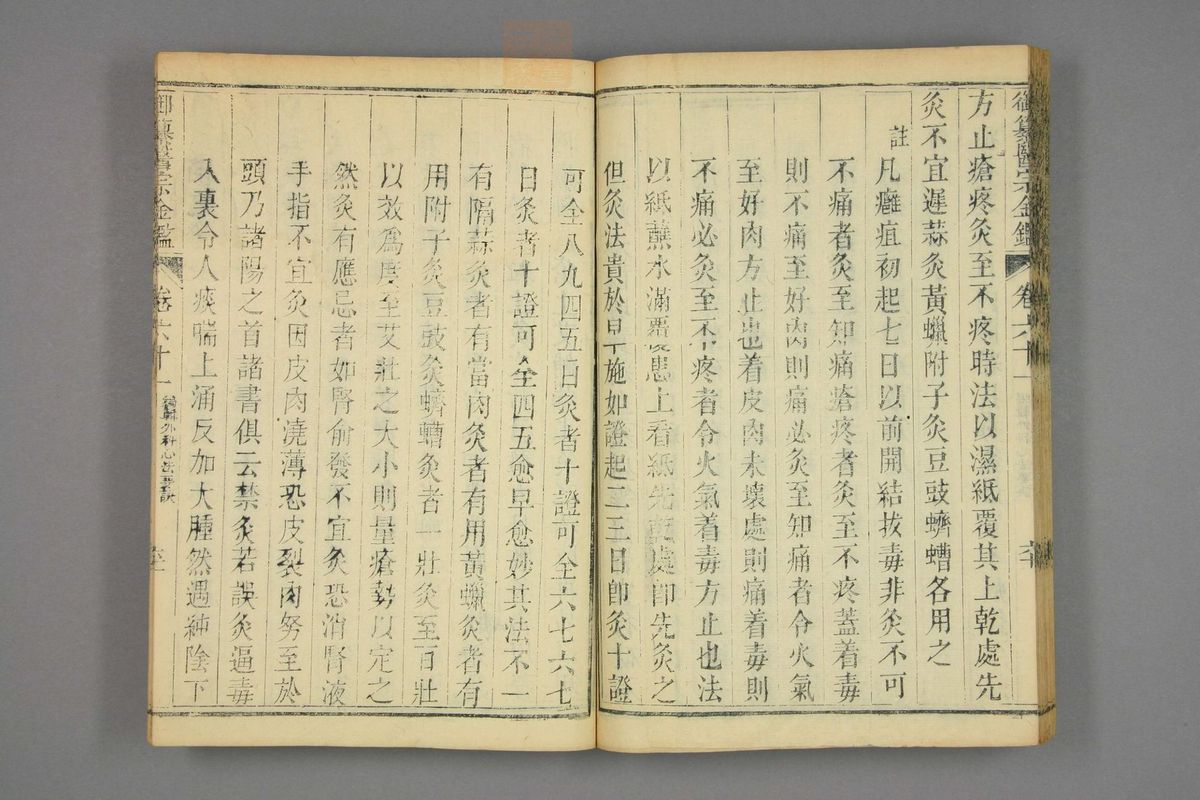 御纂醫宗金鑑 卷六十一 六十
方止瘡疼灸至不疼時法以濕紙覆其上乾處先
灸不宜遲蒜灸黃蠟附子灸豆豉蠐螬各用之
註
凡癰疽初起七日以前開結拔毒非灸不可
不痛者灸至知痛瘡疼者灸至不疼蓋着毒
則不痛至好肉則痛必灸至知痛者令火氣
至好肉方止也着皮肉未壞處則痛着毒則
不痛必灸至不疼者令火氣着毒方止也法
以紙蘸水滿覆患上看紙先乾處卽先灸之
但灸法貴於早施如證起二三日卽灸十證
可全八九四五日灸者十證可全六七六七
日灸者十證可全四五愈早愈妙其法不一
有隔蒜灸者有當肉灸者有用黃蠟灸者有
用附子灸豆豉灸蠐螬灸者一壯灸至百壯
以效爲度至艾壯之大小則量瘡勢以定之
然灸有應忌者如腎俞發不宜灸恐消腎液
手指不宜灸因皮肉澆薄恐皮裂肉努至於
頭乃諸陽之首諸書俱云禁灸若誤灸逼毒
入裏令人痰喘上涌反加大腫然遇純陰下
御纂醫宗金鑑 卷六十一 編輯外科心法要訣